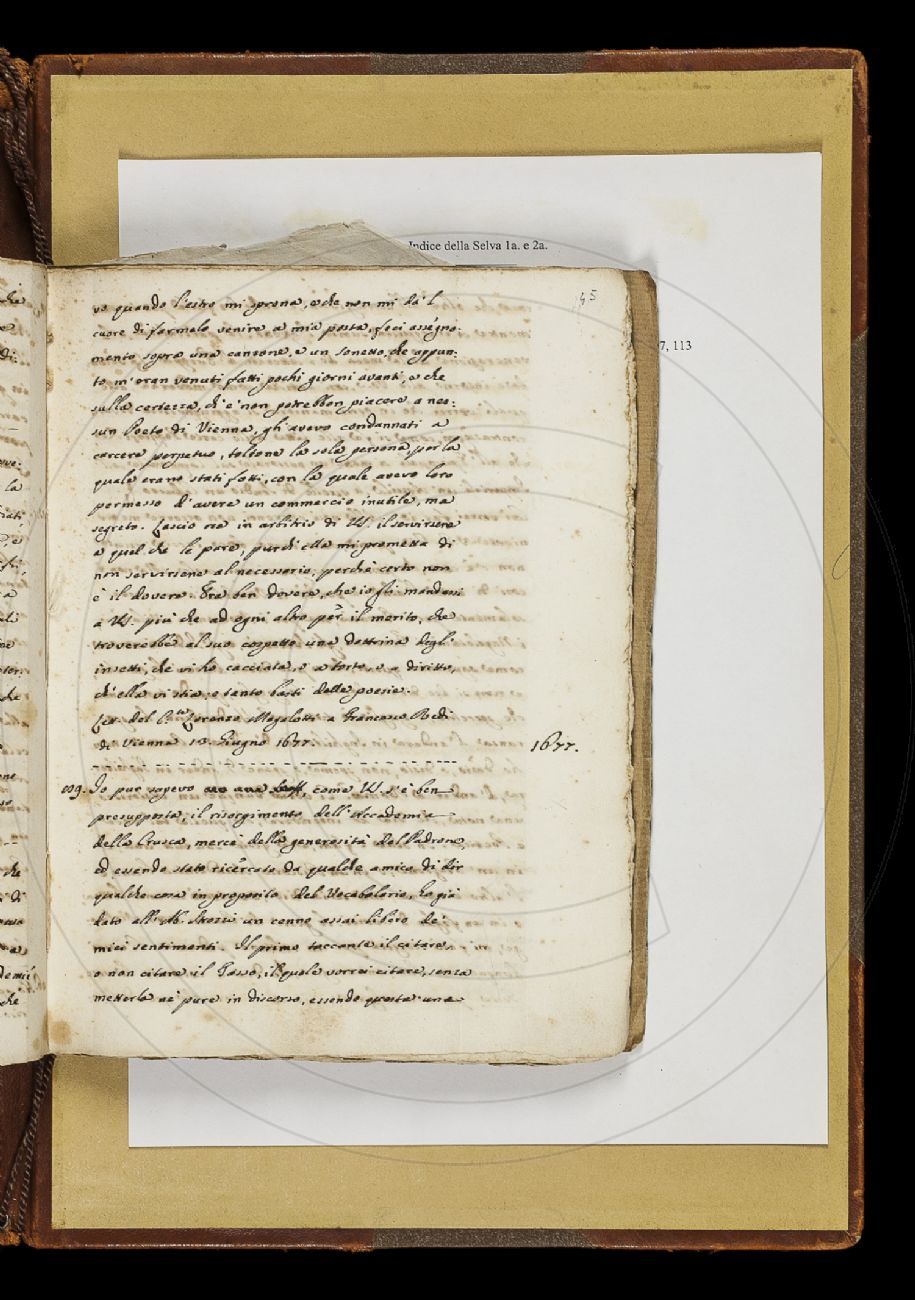 Indice della Selva 1a. e 2a.
7, 113
45
vo quando l'estro mi sprona, e che non mi dà 'l
cuore di farmelo venire a mia posta, feci assegna-
mento sopra una canzone, e un sonetto, che appun-
to m'eran venuti fatti pochi giorni avanti, e che
sulla certezza, ch'e' non potrebbon piacere a nes-
sun Poeta di Vienna, gli avevo condannati a
carcere perpetuo, toltone la sola persona, per la
quale erano stati fatti, con la quale avevo loro
permesso d'avere un commercio inutile, ma
segreto. Lascio ora in arbitrio di VS. il servirsene
a quel che le pare, purch'ella mi prometta di
non servirsene al necessario, perchè certo non
è il dovere. Era ben dovere, che io gli mandassi
a VS. più che ad ogni altro per il merito, che
troverebbe al suo cospetto una dottrina degl'
insetti, che vi ho cacciata, o a torto, o a diritto,
ch'ella vi stia; e tanto basti delle poesie.
Let. del C.te Lorenzo Magalotti a Francesco Redi
di Vienna 13. Giugno 1677.
1677.
109. Io pur sapevo, come VS. s'è ben
presupposto, il risorgimento dell'Accademia
della Crusca, mercè della generosità del Padrone,
ed essendo stato ricercato da qualche amico di dir
qualche cosa in proposito del Vocabolario, ho già
dato all'Ab. Strozzi un cenno assai libero de'
miei sentimenti. Il primo toccante il citare,
o non citare il Tasso, il quale vorrei citare, senza
metterlo nè pure in discorso, essendo questa una